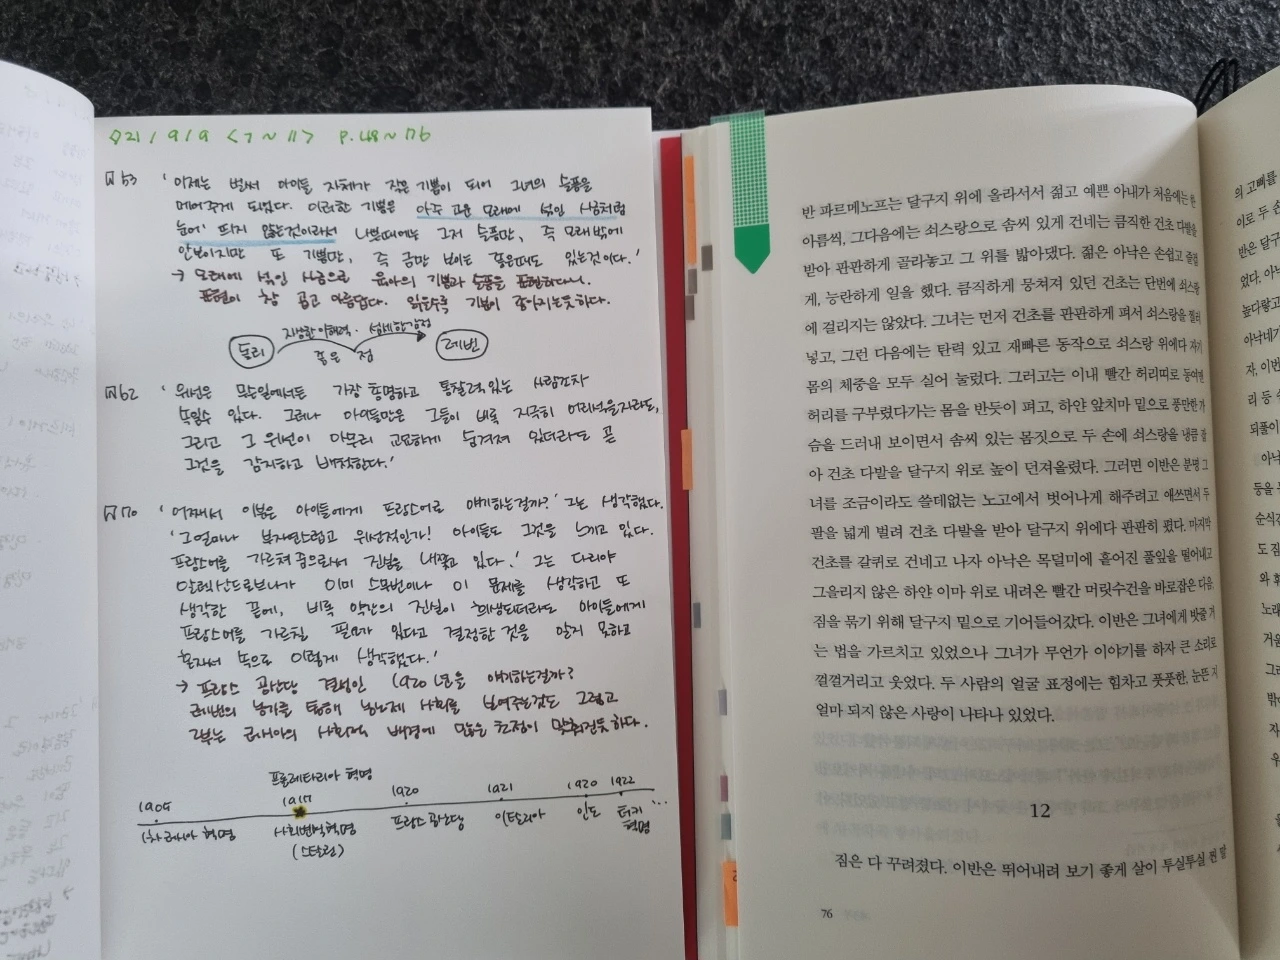 21 / 9 / 9 <7 ~ 11> p.48 ~ 76
p53 '이제는 벌써 아이들 자체가 작은 기쁨이 되어 그녀의 슬픔을
메어주게 되었다. 이러한 기쁨은 아주 고운 모래에 섞인 사금처럼
눈에 띄지 않는것이라서 나쁜때에는 그저 슬픔만, 즉 모래밖에
안보이지만 또 기쁨만, 즉 금만 보이는 좋은때도 있는것이다.'
→ 모래에 섞인 사금으로 육아의 기쁨과 슬픔을 표현하다니.
표현이 참 곱고 아름답다. 읽을수록 기분이 좋아지는듯하다.
돌리 자상한 이해력. 섬세한 감정 레빈
좋은 점
p62 '위선은 모든일에서든 가장 총명하고 통찰력있는 사람조차
속일수 있다. 그러나 아이들만은 그들이 비록 지극히 어리석을지라도,
그리고 그 위선이 아무리 교묘하게 숨겨져 있더라도 곧
그것을 감지하고 배척한다.'
p70 '어째서 이분은 아이들에게 프랑스어로 얘기하는걸까?' 그는 생각했다.
'그 얼마나 부자연스럽고 위선적인가! 아이들도 그것을 느끼고 있다.
프랑스어를 가르쳐 줌으로써 진실을 내쫓고 있다.' 그는 다리야
알렉산드로브나가 이미 스무번이나 이 문제를 생각하고 또
생각한 끝에, 비록 약간의 진실이 희생되더라도 아이들에게
프랑스어를 가르칠 필요가 있다고 결정한 것을 알지 못하고
혼자서 속으로 이렇게 생각했다.'
→ 프랑스 공산당 결성인 1920년을 얘기하는걸까?
레빈의 농가를 통해 농노제 사회를 보여주는것도 그렇고
2부는 러시아의 사회적 배경에 많은 초점이 맞춰진듯 하다.
프롤레타리아 혁명
1905 1917 1920 1921 1920 1922
1차 러시아 혁명 사회변혁혁명 프랑스 공산당 이탈리아 인도 터키 ...
(스탈린) 혁명
반 파르메노프는 달구지 위에 올라서서 젊고 예쁜 아내가 처음에는 한
아름씩, 그다음에는 쇠스랑으로 솜씨 있게 건네는 큼직한 건초 다발을
받아 판판하게 골라놓고 그 위를 밟아댔다. 젊은 아낙은 손쉽고 즐겁
게, 능란하게 일을 했다. 큼직하게 뭉쳐져 있던 건초는 단번에 쇠스랑
에 걸리지는 않았다. 그녀는 먼저 건초를 판판하게 펴서 쇠스랑을 찔러
넣고, 그런 다음에는 탄력 있고 재빠른 동작으로 쇠스랑 위에다 자기
몸의 체중을 모두 실어 눌렀다. 그러고는 이내 빨간 허리띠로 동여맨
허리를 구부렸다가는 몸을 반듯이 펴고, 하얀 앞치마 밑으로 풍만한 가
슴을 드러내 보이면서 솜씨 있는 몸짓으로 두 손에 쇠스랑을 냉큼 잡
아 건초 다발을 달구지 위로 높이 던져올렸다. 그러면 이반은 분명 그
녀를 조금이라도 쓸데없는 노고에서 벗어나게 해주려고 애쓰면서 두
팔을 넓게 벌려 건초 다발을 받아 달구지 위에다 판판히 폈다. 마지막
건초를 갈퀴로 건네고 나자 아낙은 목덜미에 흩어진 풀잎을 떨어내고
그을리지 않은 하얀 이마 위로 내려온 빨간 머릿수건을 바로잡은 다음,
짐을 묶기 위해 달구지 밑으로 기어들어갔다. 이반은 그녀에게 밧줄 거
는 법을 가르치고 있었으나 그녀가 무언가 이야기를 하자 큰 소리로
껄껄거리고 웃었다. 두 사람의 얼굴 표정에는 힘차고 풋풋한, 눈뜬 지
얼마 되지 않은 사랑이 나타나 있었다.
12
짐은 다 꾸려졌다. 이반은 뛰어내려 보기 좋게 살이 투실투실 찐 말
76
의 고삐를
이로 두 손